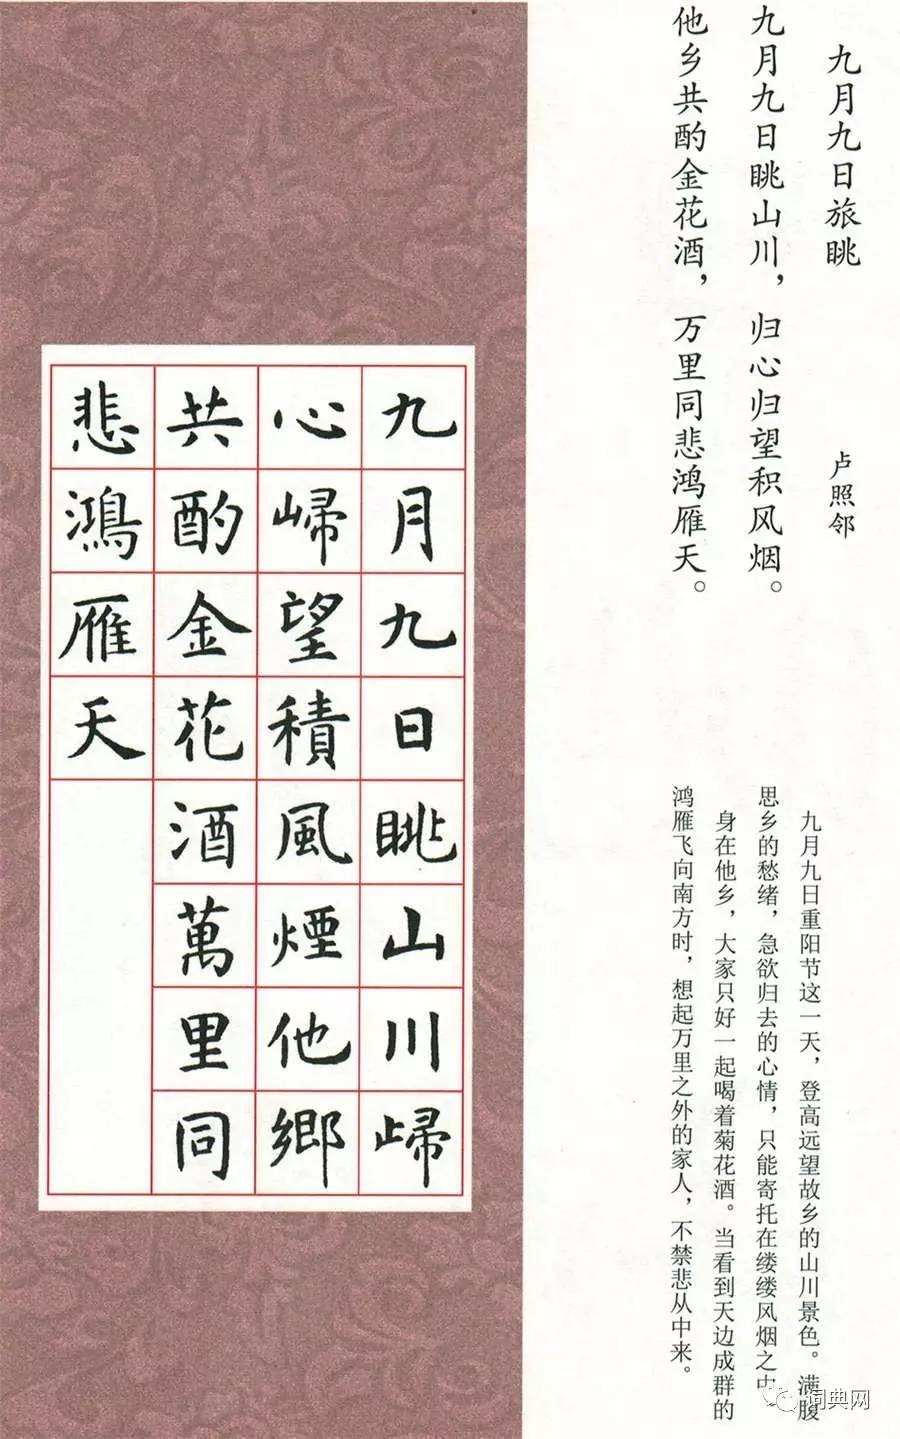 九月九日旅眺
卢照邻
九月九日眺山川，归心归望积风烟。
他乡共酌金花酒，万里同悲鸿雁天。
九月九日重阳节这一天，登高远望故乡的山川景色。满腹
思乡的愁绪，急欲归去的心情，只能寄托在缕缕风烟之中
身在他乡，大家只好一起喝着菊花酒。当看到天边成群的
鸿雁飞向南方时，想起万里之外的家人，不禁悲从中来。
九月九日眺山川㱕
心㱕望積風煙他鄉
共酌金花酒萬里同
悲鴻雁天
词典网